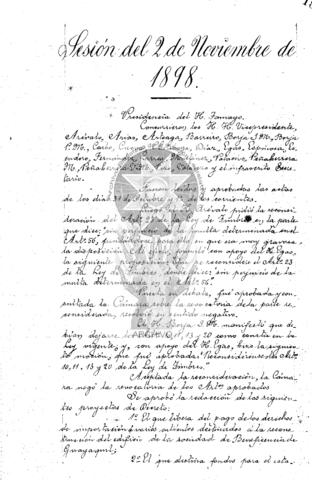 Sesión del 2 de Noviembre de
1898.
Presidencia del H. Tamayo.
Concurrieron los H. H. Vicepresidente,
Arévalo, Arias, Arteaga, Barrero, Borja J. M., Borja
P. M., Carbo, Díaz, Egas, Espinosa,
Fernández, Peñaherrera
M., y el infrascrito Secre-
tario.
aprobadas las actas
de los días 31 de Octubre y 1º de los corrientes.
Arévalo pidió la reconsi-
deración del de la Ley de Timbres en la parte
que dice: multa determinada en el
Art. 56, fundándose para ello en que era muy grave
la disposición con apoyo del H. Egas,
la siguiente reconsidérese el Art. 23
de la Ley de Timbres donde dice: sin perjuicio de la
multa determinada en el Art. 56.
debate, fué aprobada y con-
sultada la Cámara sobre la revocatoria de la parte re-
considerada, resolvió en sentido negativo.
El H. Borja J. M. manifestó que de-
bían dejarse 11, 13 y 20 como están en la
Ley vigente, y con apoyo del H. Egas, hizo la siguien-
te moción, que fué aprobada: "Reconsidérense los Arts.
10, 11, 13 y 20 de la Ley de Timbres".
Aceptada la reconsideración, la Cáma-
ra negó la revocatoria de los Arts. aprobados
Se aprobó la redacción de los siguien-
tes proyectos de Decreto:
1º El que libera del pago de los derechos
de importación á varios artículos destinados á la recons-
trucción del edificio de la sociedad de Beneficencia de
Guayaquil;
2º El que destina fondos para el esta-